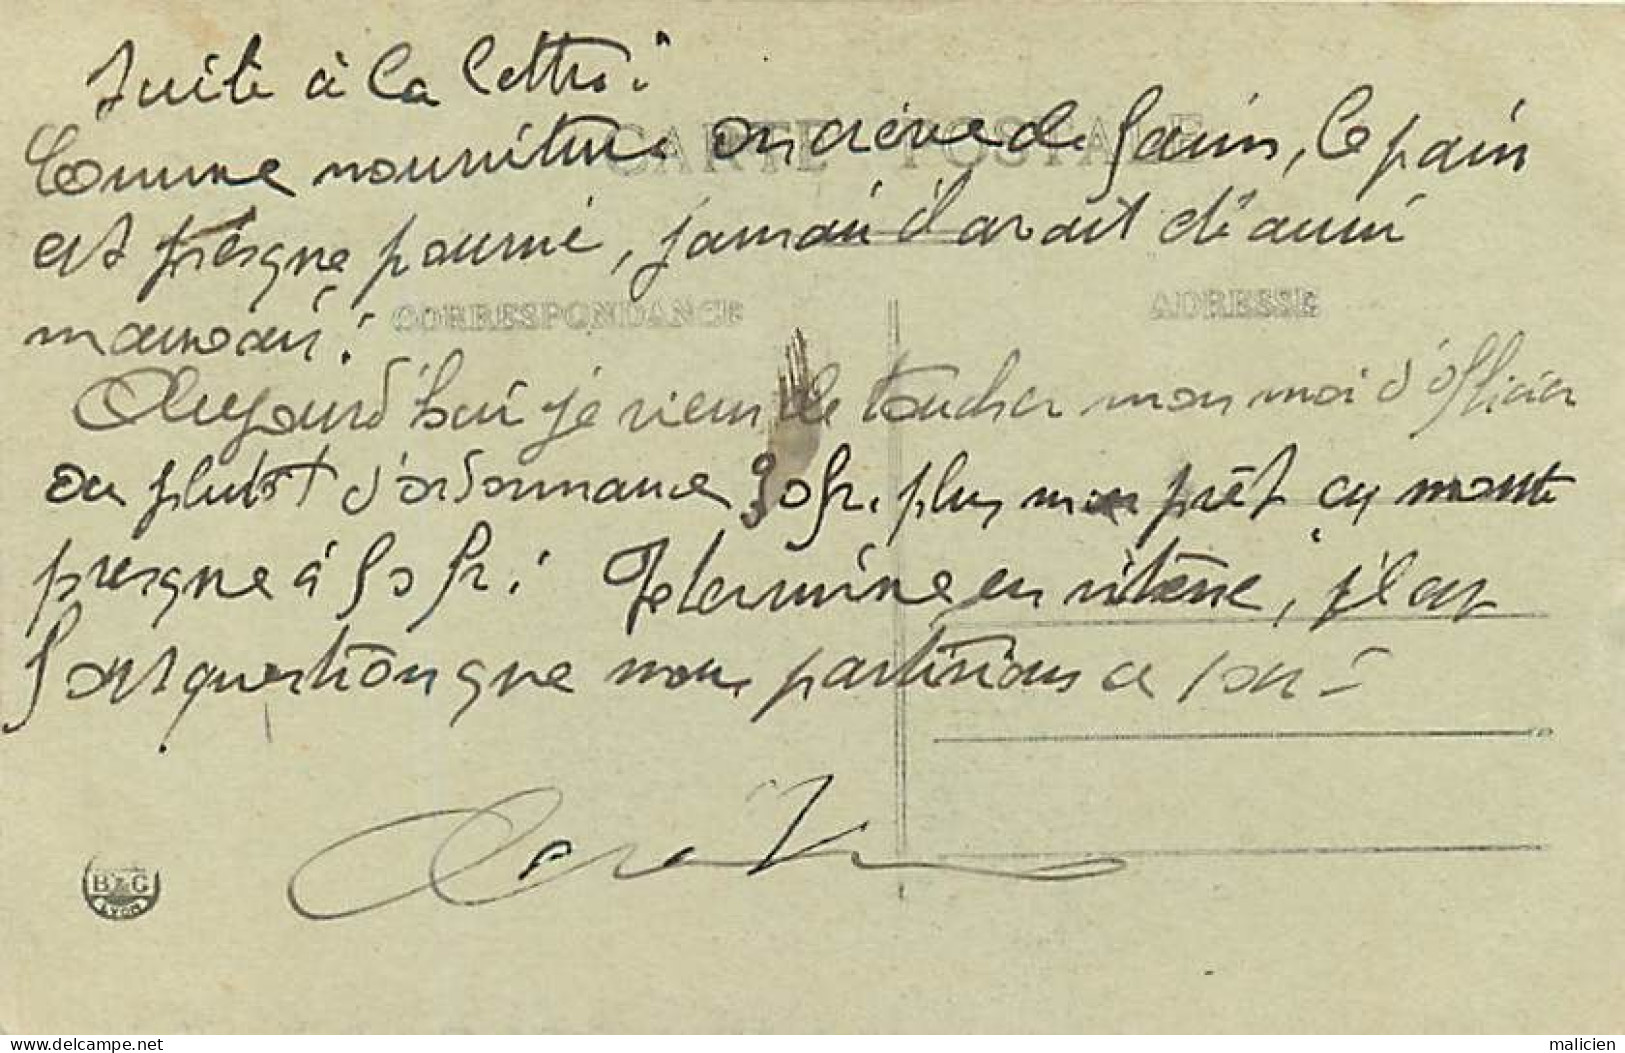 Suite à la lettre :
CARTE POSTALE
Comme nourriture on crève de faim, le pain
est presque pourri, jamais il avait été aussi
mauvais !
CORRESPONDANCE
ADRESSE
Aujourd'hui je viens de toucher mon mois d'officier
ou plutôt d'ordonnance 30 fr. plus mon prêt ça monte
presque à 50 fr. Je termine en vitesse, il est
fort question que nous partirions ce soir
B & G
LYON
delcampe.net
malicien